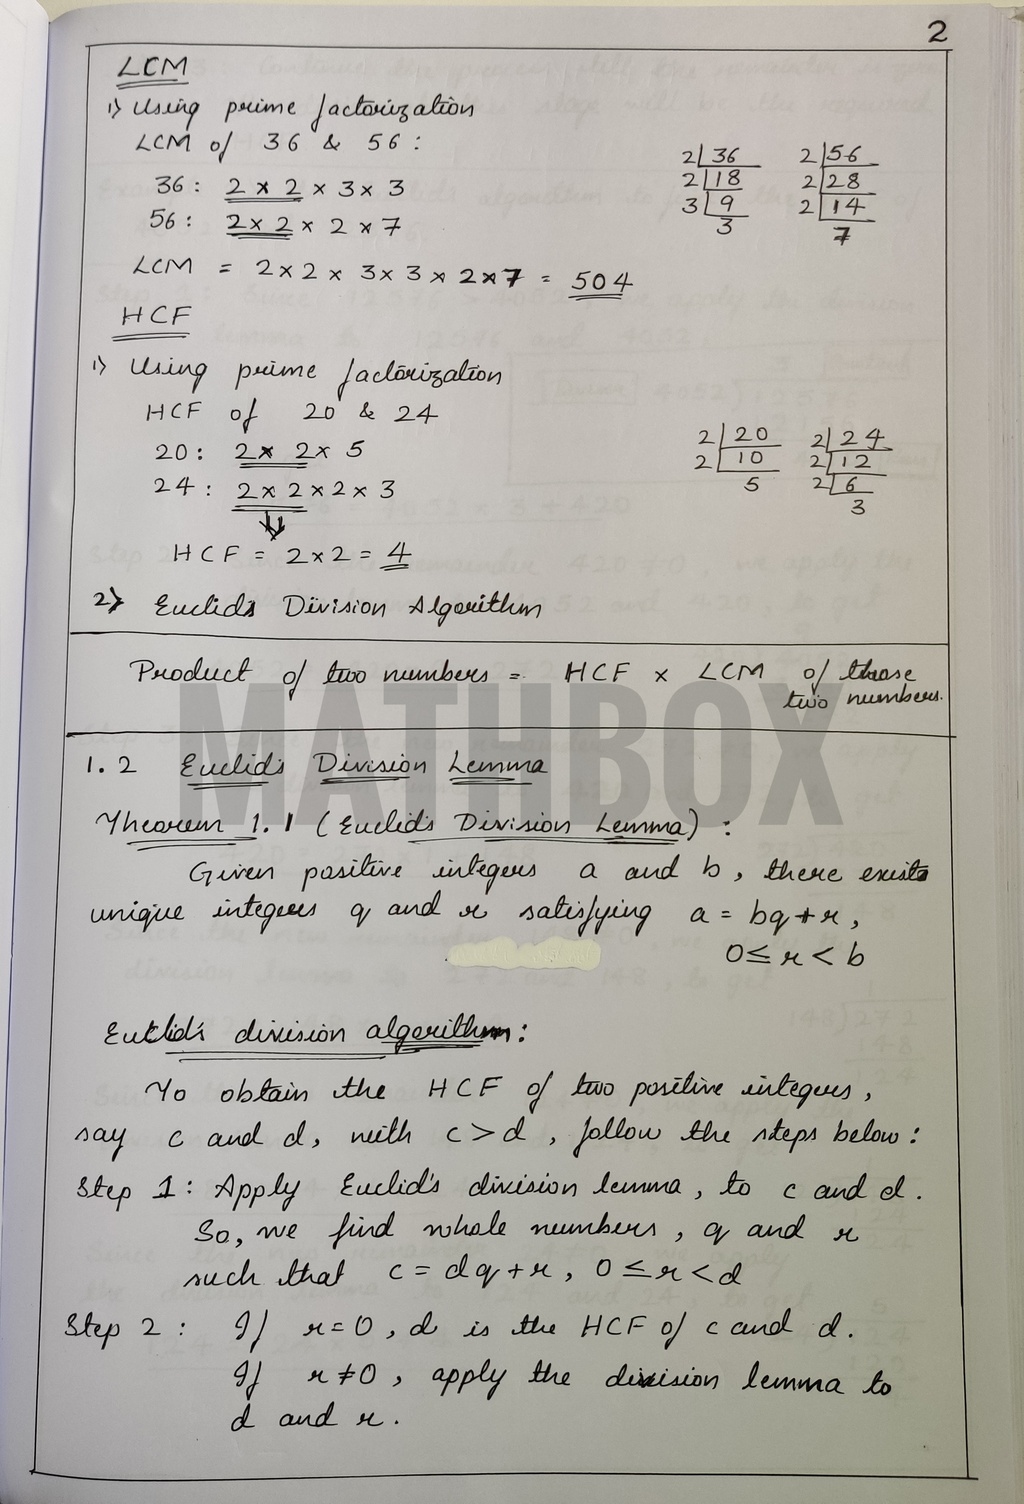 2
LCM
1) Using prime factorization
LCM of 36 & 56 :
36 : 2 × 2 × 3 × 3
56 : 2 × 2 × 2 × 7
2 36 2 56
2 18 2 28
3 9 2 14
3 7
LCM = 2 × 2 × 3 × 3 × 2 × 7 = 504
HCF
1) Using prime factorization
HCF of 20 & 24
20 : 2 × 2 × 5
24 : 2 × 2 × 2 × 3
2 20 2 24
2 10 2 12
5 2 6
3
HCF = 2 × 2 = 4
2) Euclid's Division Algorithm
Product of two numbers = HCF × LCM of those
two numbers.
MATHBOX
1.2 Euclid's Division Lemma
Theorem 1.1 (Euclid's Division Lemma) :
Given positive integers a and b, there exists
unique integers q and r satisfying a = bq + r,
0 ≤ r < b
Euclid's division algorithm :
To obtain the HCF of two positive integers,
say c and d, with c > d, follow the steps below :
Step 1 : Apply Euclid's division lemma, to c and d.
So, we find whole numbers, q and r
such that c = dq + r, 0 ≤ r < d
Step 2 : If r = 0, d is the HCF of c and d.
If r ≠ 0, apply the division lemma to
d and r.